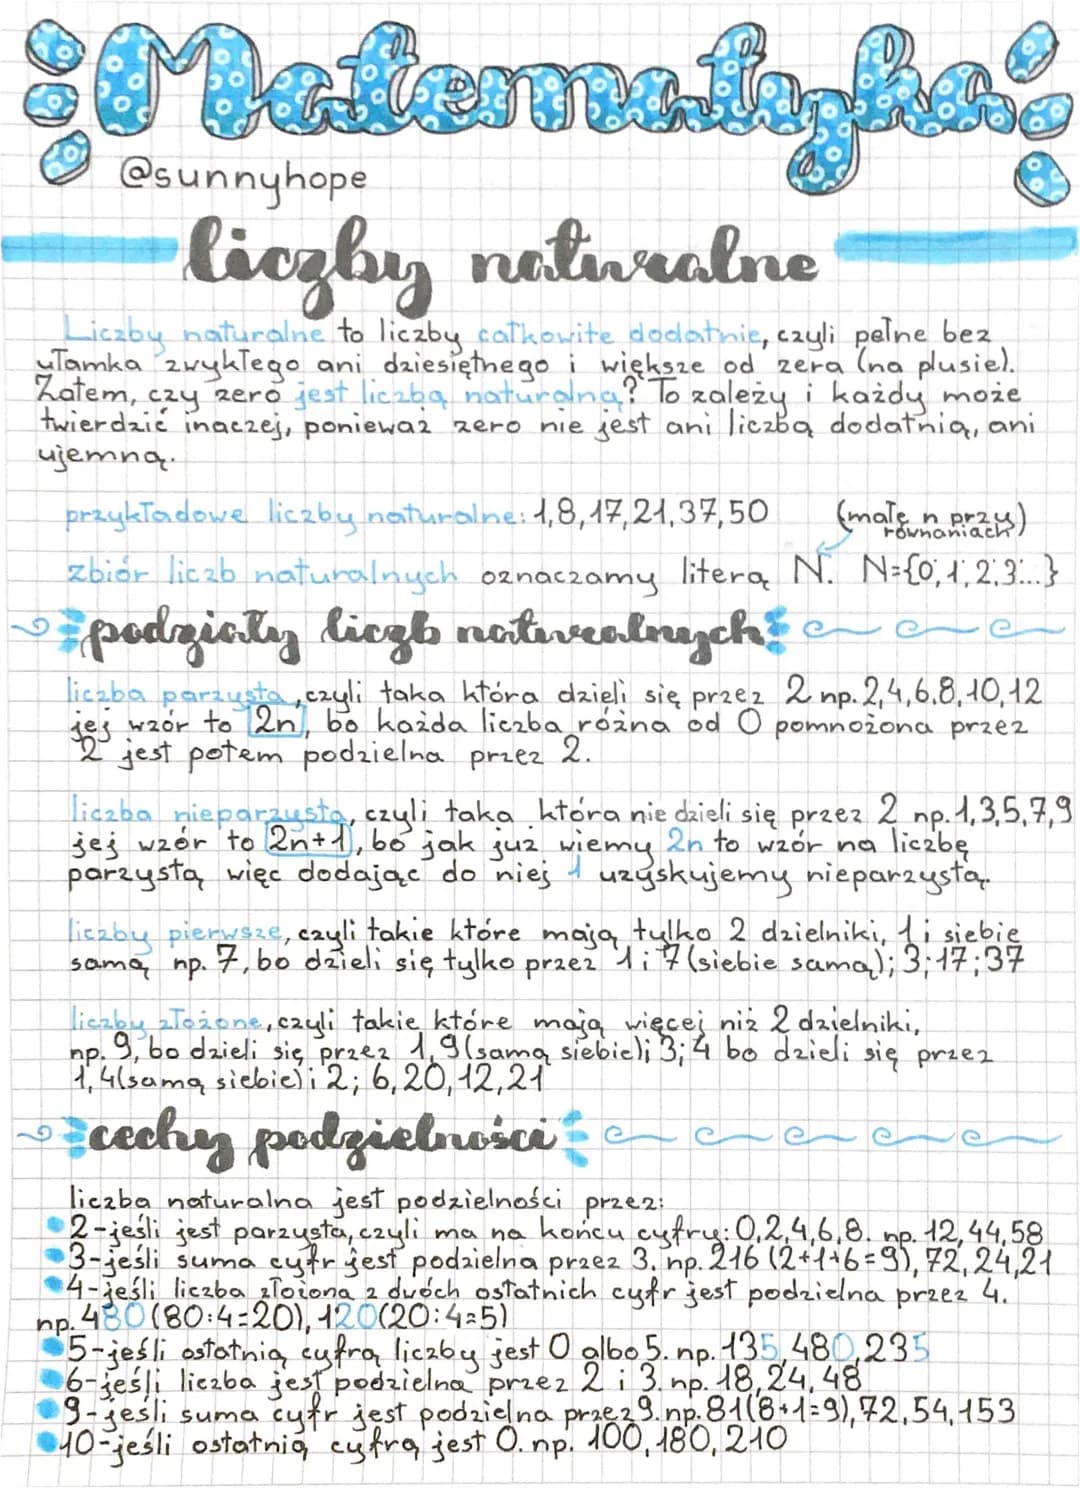 Matematyka
@sunnyhope
liczby naturalne
Liczby naturalne to liczby całkowite dodatnie, czyli pełne bez
ułamka zwykłego ani dziesiętnego i większe od zera (na plusie).
Zatem, czy zero jest liczbą naturalną? To zależy i każdy może
twierdzić inaczej, ponieważ zero nie jest ani liczbą dodatnią, ani
ujemną.
przykładowe liczby naturalne: 1,8,17,21,37,50 (małe n przy
równaniach)
zbiór liczb naturalnych oznaczamy literą N. N={0;1;2;3...}
podziały liczb naturalnych
liczba parzysta, czyli taka która dzieli się przez 2 np. 2,4,6,8,10,12
jej wzór to 2n, bo każda liczba różna od 0 pomnożona przez
2 jest potem podzielna przez 2.
liczba nieparzysta, czyli taka która nie dzieli się przez 2 np. 1,3,5,7,9
jej wzór to 2n+1, bo jak już wiemy 2n to wzór na liczbę
parzystą więc dodając do niej 1 uzyskujemy nieparzystą.
liczby pierwsze, czyli takie które mają tylko 2 dzielniki, 1 i siebie
samą np. 7, bo dzieli się tylko przez 1 i 7 (siebie samą); 3;17;37
liczby złożone, czyli takie które mają więcej niż 2 dzielniki,
np. 9, bo dzieli się przez 1, 9(samą siebie)i 3; 4 bo dzieli się przez
1, 4(samą siebie) i 2; 6,20,12,21
cechy podzielności
liczba naturalna jest podzielności przez:
2-jeśli jest parzysta, czyli ma na końcu cyfry: 0,2,4,6,8. np. 12,44,58
3-jeśli suma cyfr jest podzielna przez 3. np. 216 (2+1+6=9), 72, 24,21
4-jeśli liczba złożona z dwóch ostatnich cyfr jest podzielna przez 4.
np. 480 (80:4=20), 120(20:4=5)
5-jeśli ostatnią cyfrą liczby jest 0 albo 5. np. 135,480,235
6-jeśli liczba jest podzielna przez 2 i 3. np. 18,24,48
9-jeśli suma cyfr jest podzielna przez 9. np. 81(8+1=9),72,54,153
10-jeśli ostatnią cyfrą jest 0. np. 100,180,210